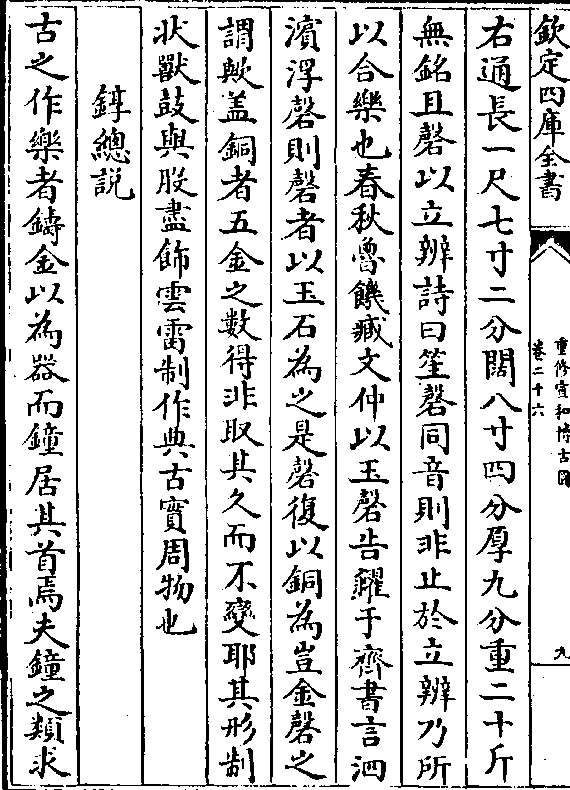 欽定四庫全書
重修宣和博古圖
卷二十六
九
右通長一尺七寸二分闊八寸四分厚九分重二十斤
無銘且磬以立辨詩曰笙磬同音則非止於立辨乃所
以合樂也春秋魯饑臧文仲以玉磬告糴于齊書言泗
濵浮磬則磬者以玉石為之是磬復以銅為豈金磬之
謂歟盖銅者五金之數得非取其久而不變耶其形制
状獸鼓與股盡飾雲雷制作典古實周物也
錞總説
古之作樂者鑄金以為器而鐘居其首焉夫鐘之類求